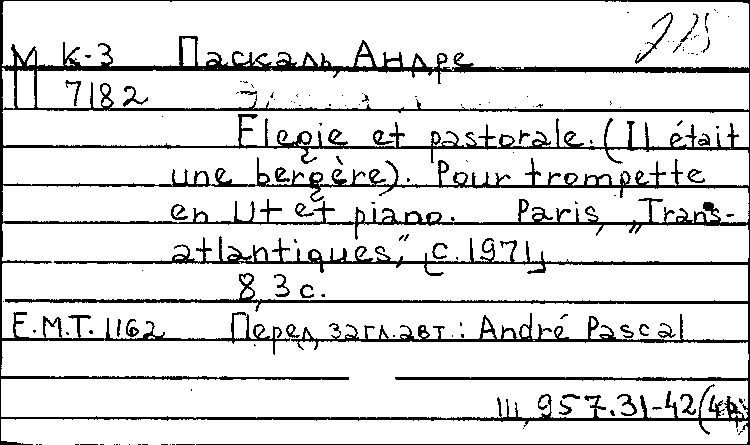 225
М К-3 Паскаль, Андре
П 7182
Elegie et pastorale. (Il était
une bergère). Pour trompette
en Ut et piano. Paris, „Trans-
atlantiques," [c. 1971]
8, 3 с.
E.M.T. 1162 Перед загл. авт.: André Pascal
Ш, 957.31-42